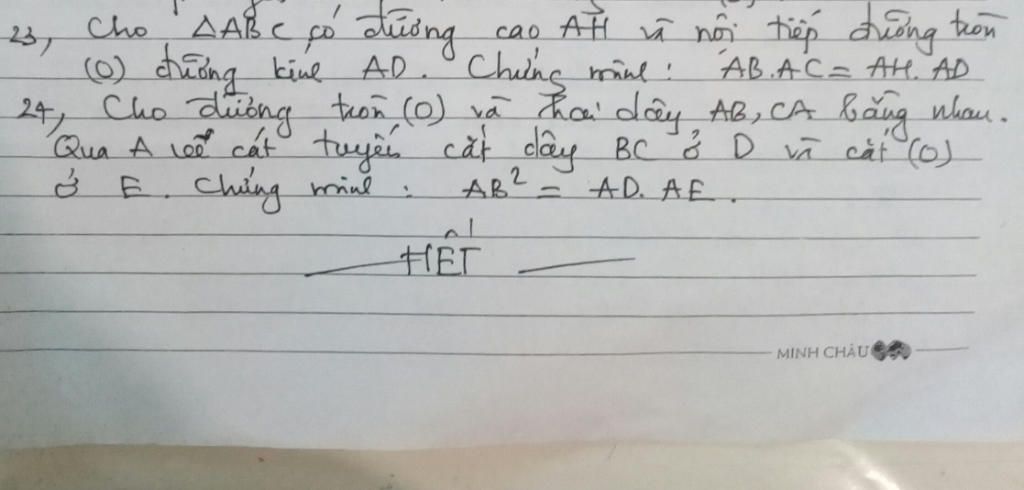 23, Cho △ABC có đường cao AH và nội tiếp đường tròn
(O) đường kính AD. Chứng minh: AB.AC = AH.AD
24, Cho đường tròn (O) và hai dây AB, CA bằng nhau.
Qua A vẽ cát tuyến cắt dây BC ở D và cắt (O)
ở E. Chứng minh: AB² = AD.AE.
HẾT
MINH CHÂU